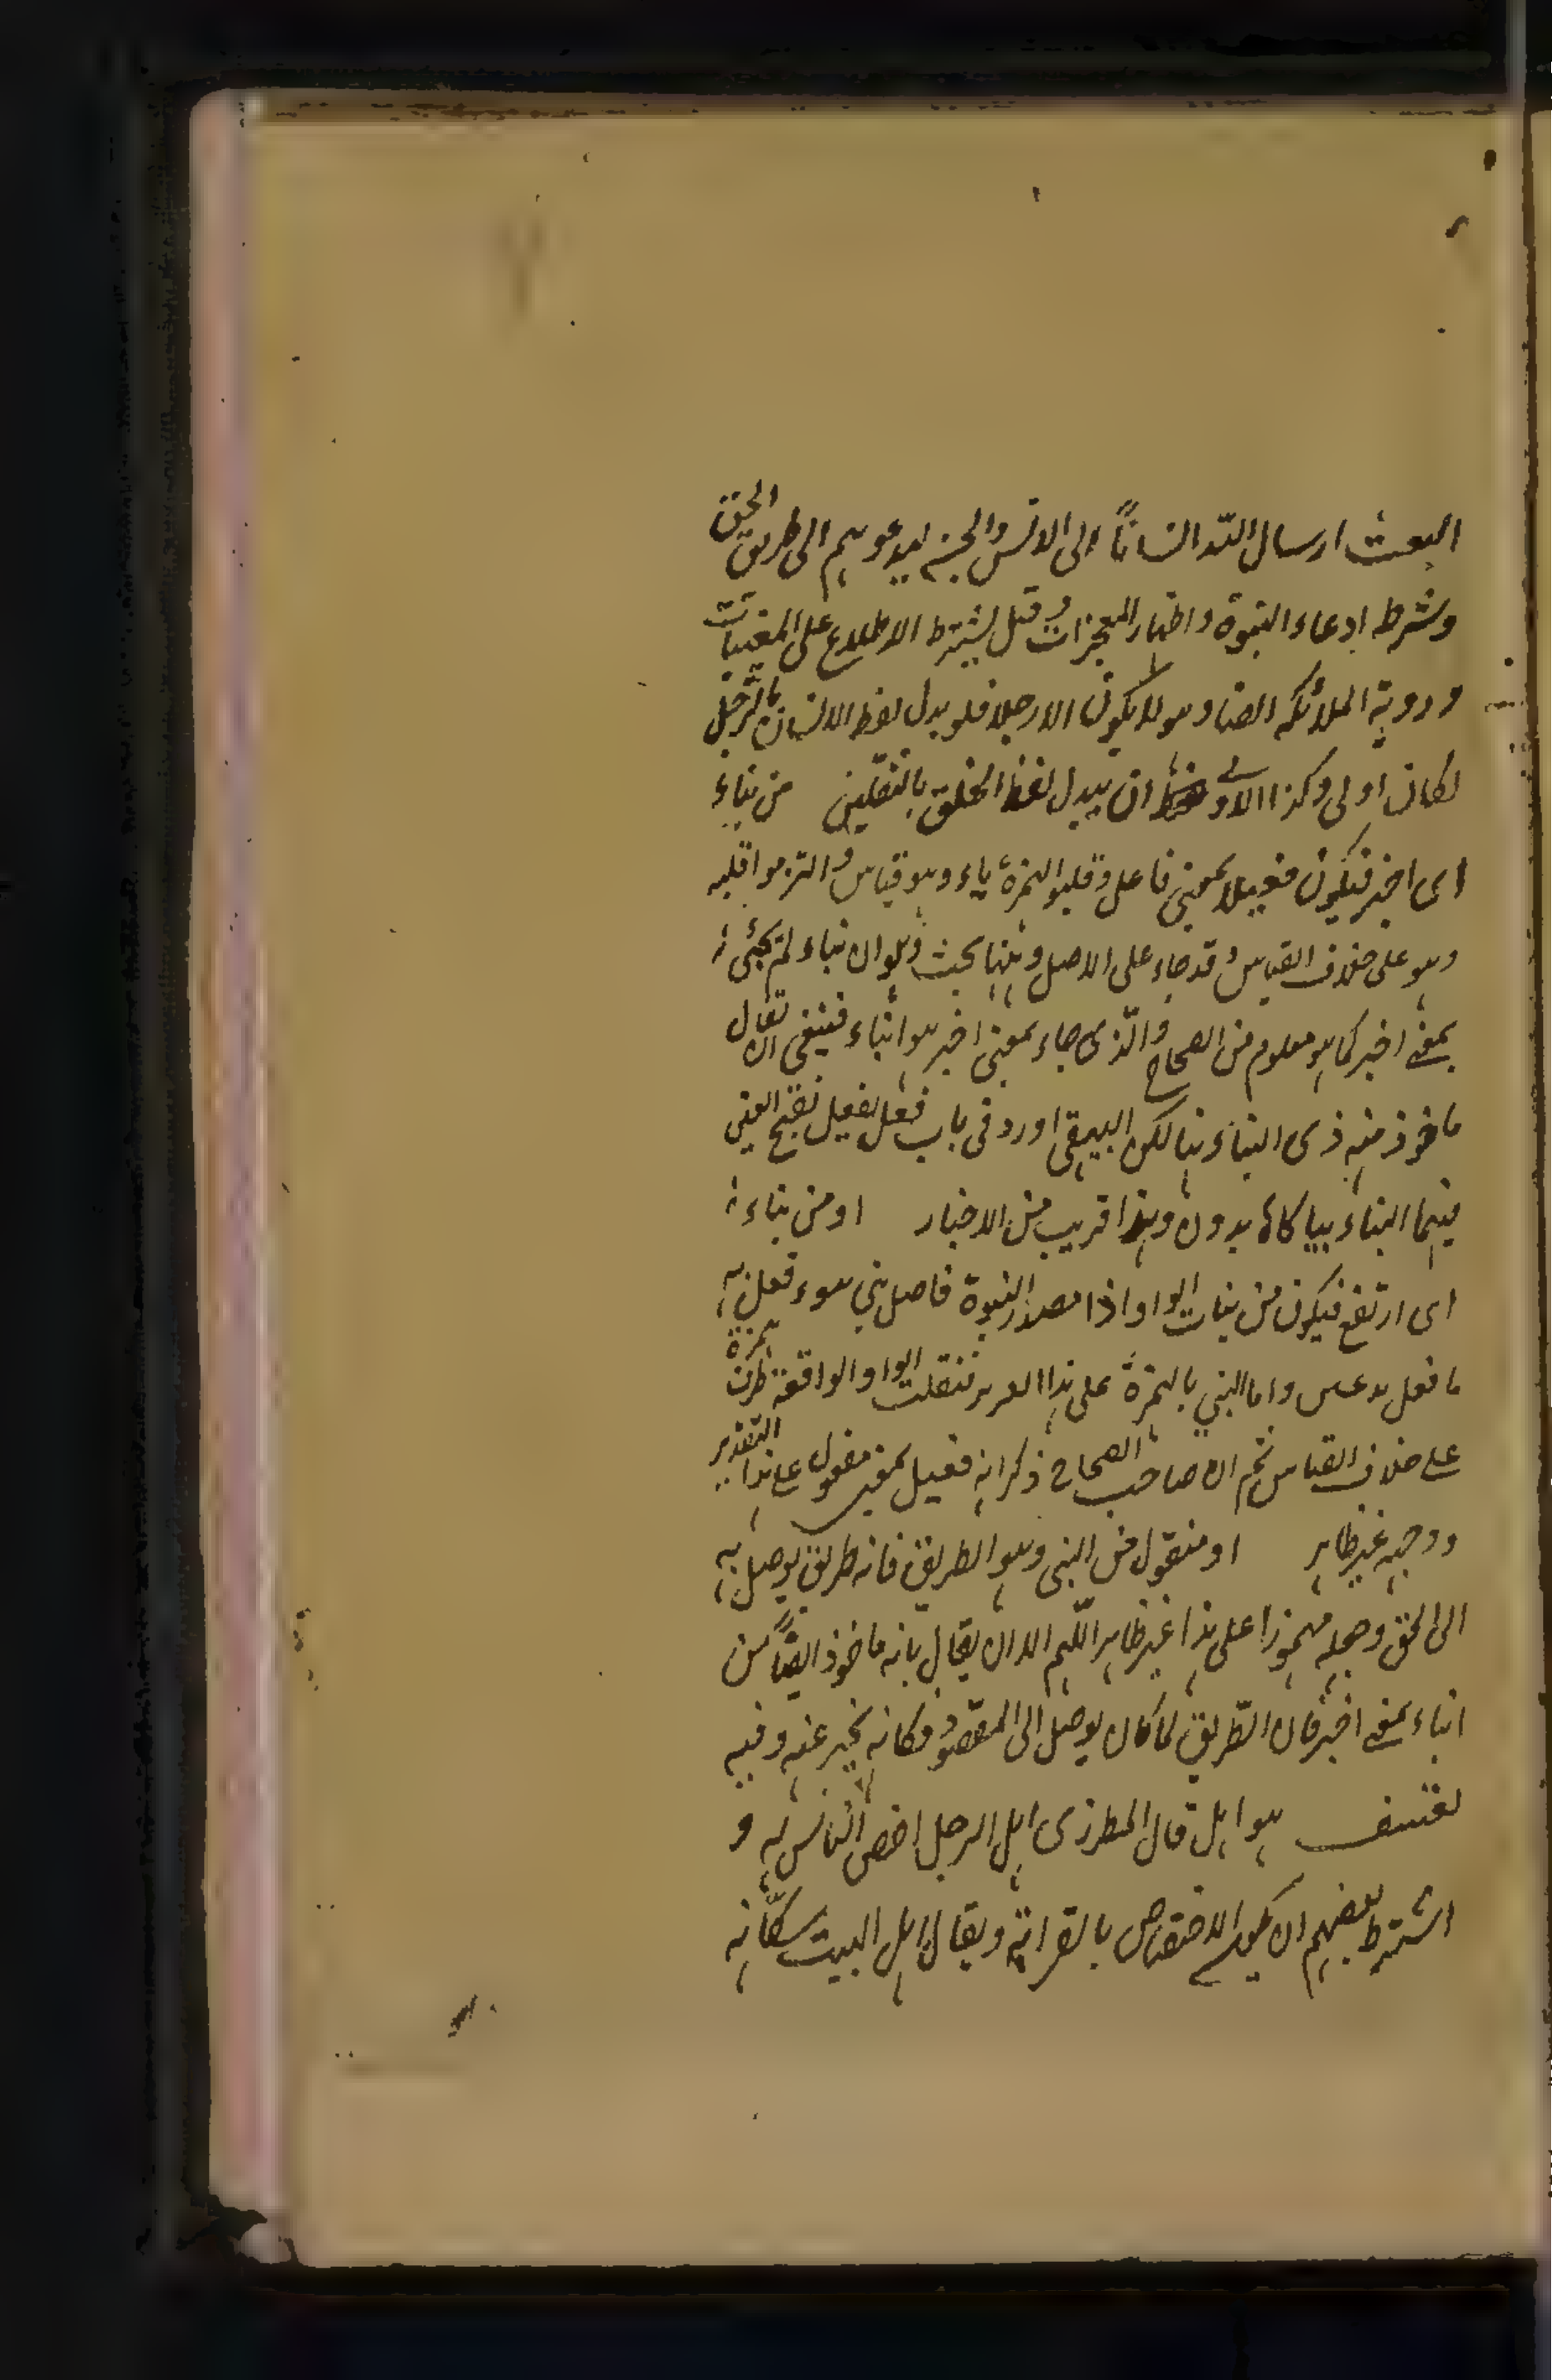 البعث ارسال اللّه انساناً الى الانس والجن ليدعوهم الى طريق الحق
وشرط ادعاء النبوة واظهار المعجزات وقيل يشترط الاطلاع على المغيبات
وروية الملائكه ايضا وهو لا يكون الا رجلا فلو بدل لفظ الانسان بالرّجل
لكان اولى وكذا الاولى ان يبدل لفظ الخلق بالثقلين من نباء
اى اخبر فيكون فعيلا بمعنى فاعل وقلبوا الهمزة ياء وهو قياس والتزموا قلبه
وهو على خلاف القياس وقد جاء على الاصل وههنا بحث وهو ان نباء لم يجئ
بمعنى اخبر كما هو معلوم من الصحاح والّذى جاء بمعنى اخبر هو انباء فينبغى ان يقال
ماخوذ منه ذى النباء هنا لكن البيهقى اورد فى باب فعل يفعل بفتح العين
فيهما النباء بيا كاهانيدن وهذا قريب من الاخبار او من نباء
اى ارتفع فيكون من بنات الواو اذا مصدر النبوة فاصل نبي نبيو فعل به
ما فعل واما النبي بالهمزة على هذا فنقلت الواو الواقعة طرف همزة
على خلاف القياس ثم ان صاحب الصحاح ذكر انه فعيل بمعنى مفعول على هذا التقدير
ووجهه غير ظاهر او منقول من النبى وهو الطريق فانه طريق يوصل به
الى الحق وجعله مهموزا على هذا غير ظاهر اللّهم الا ان يقال بانه ماخوذ ايضاً من
انباء بمعنى اخبر فان الطّريق لما كان يوصل الى المقصود فكانه يخبر عنه وفيه
تعسف هو اهل قال المطرزى اهل الرجل اخص الناس به و
اشترط بعضهم ان يكون الاختصاص بالقرابة ويقال اهل البيت سكّانه